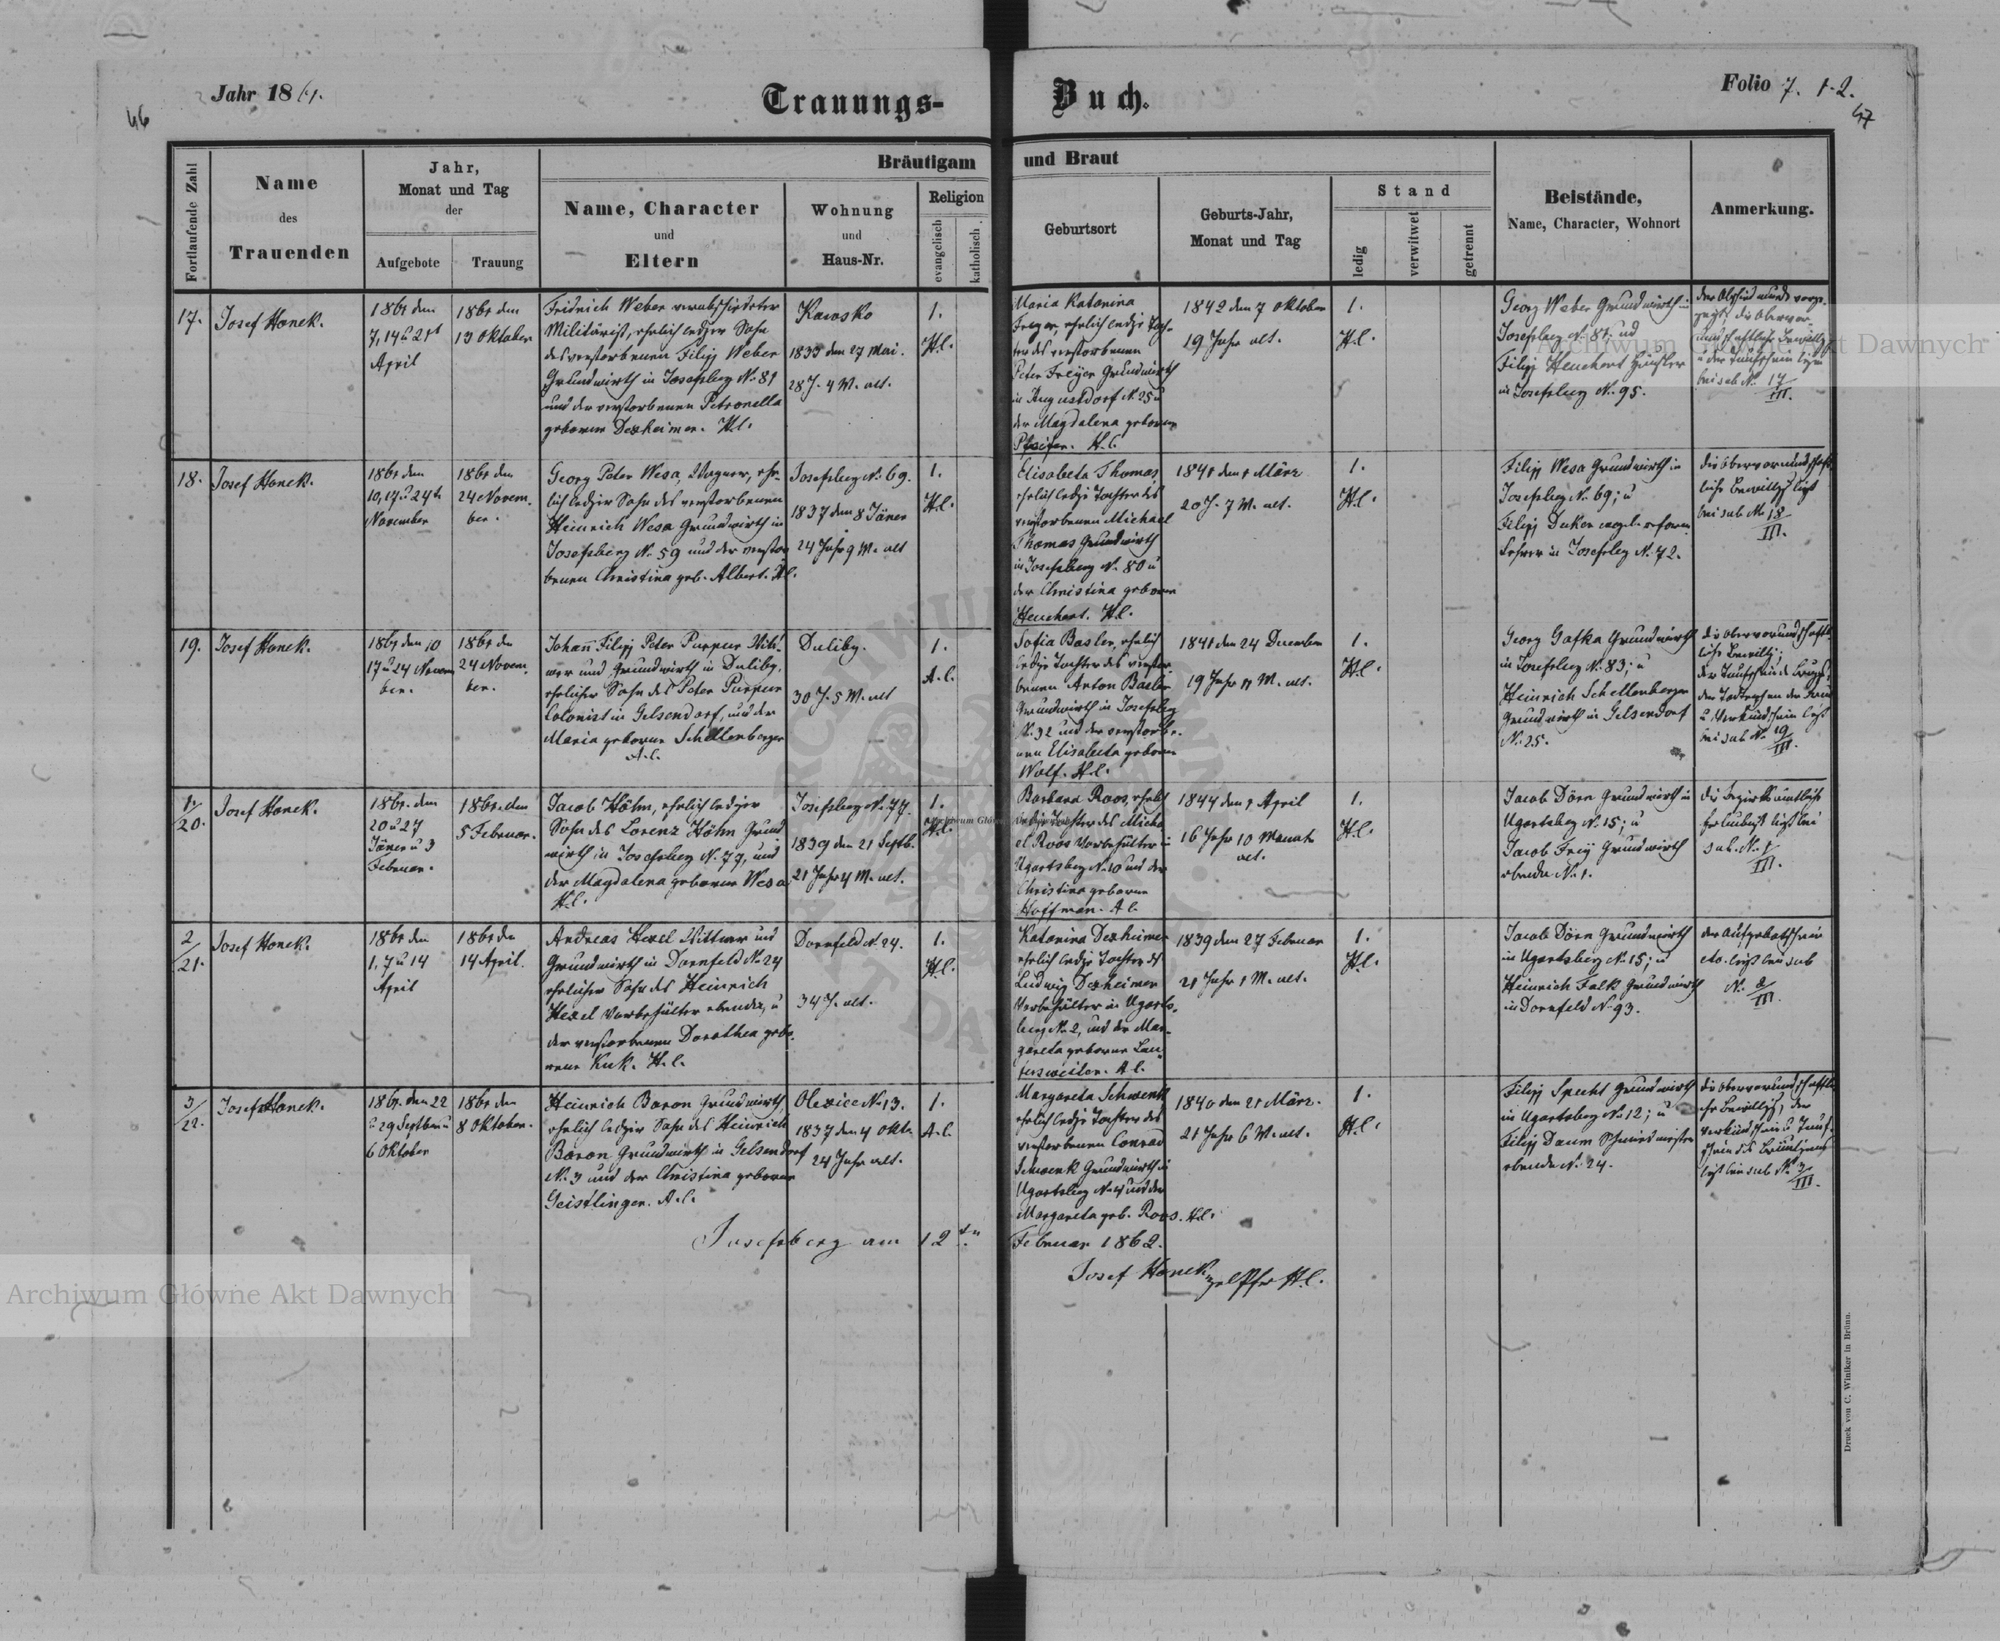 Jahr 1861.
Trauungs-Buch.
Folio 7. 1-2.
46
47
Fortlaufende Zahl
Name
des
Trauenden
Jahr,
Monat und Tag
der
Aufgebote
Trauung
Bräutigam und Braut
Name, Character
und
Eltern
Wohnung
und
Haus-Nr.
Religion
evangelisch
katholisch
Geburtsort
Geburts-Jahr,
Monat und Tag
Stand
ledig
verwitwet
getrennt
Beistände,
Name, Character, Wohnort
Anmerkung.
17.
Josef Honek.
1861 den
7, 14 u 21t
April
1861 den
13 Oktober
Fridrich Weber verabschiedeter
Militärist, ehrlich lediger Sohn
des verstorbenen Filipp Weber
Grundwirth in Josefsberg No. 81
und der verstorbenen Petronella
geborene Dexheimer. H.C.
Kawsko
1833 den 27 Mai.
28 J. 4 M. alt.
1.
H.C.
Maria Katarina
Freyer, ehrlich ledige Toch-
ter des verstorbenen
Peter Freyer Grundwirth
in Augustdorf N. 25 u
der Magdalena geborene
Pfeifer. H.C.
1842 den 7 Oktober
19 Jahr alt.
1.
H.C.
Georg Weber Grundwirth in
Josefsberg No. 81; und
Filipp Heuchert
in Josefsberg No. 95.
bei sub No. 17/III.
18.
Josef Honek.
1861 den
10, 17 u 24t
November
1861 den
24 Novem-
ber.
Georg Peter Wesa, Wagner, ehr-
lich lediger Sohn des verstorbenen
Heinrich Wesa Grundwirth in
Josefsberg No. 59 und der verstor
benen Christina geb. Albert. H.C.
Josefsberg No. 69.
1837 den 8 Jäner
24 Jahr 9 M. alt
1.
H.C.
Elisabeta Thomas,
ehrlich ledige Tochter des
verstorbenen Michael
Thomas Grundwirth
in Josefsberg No. 80 u
der Christina geborene
Heuchert. H.C.
1841 den 1 März
20 J. 7 M. alt.
1.
H.C.
Filipp Wesa Grundwirth in
Josefsberg No. 69; u
Filipp Duker evgel. reform.
Lehrer in Josefsberg No. 72.
die Obervormundschaft
liche Bewillig. liegt
bei sub No. 18/III.
19.
Josef Honek.
1861 den 10
17 u 24 Novem
ber.
1861 den
24 Novem-
ber.
Johann Filipp Peter Purpur Witt-
wer und Grundwirth in Duliby,
ehelicher Sohn des Peter Purpur
Colonist in Gelsendorf, und der
Maria geborene Schellenberger
A.C.
Duliby.
30 J. 5 M. alt
1.
A.C.
Sofia Basler, ehrlich
ledige Tochter des verstor-
benen Anton Basler
Grundwirth in Josefsberg
N. 32 und der verstorbe-
nen Elisabeta geborene
Wolf. H.C.
1841 den 24 December
19 Jahr 11 M. alt.
1.
H.C.
Georg Gafka Grundwirth
in Josefsberg N. 83; u
Heinrich Schellenberger
Grundwirth in Gelsendorf
N. 25.
die obervormundschaft
liche Bewillig.;
bei sub No 19/III.
1/20.
Josef Honek.
1861. den
20 u 27
Jäner u 3
Februar.
1861. den
5 Februar.
Jacob Höhn, ehrlich lediger
Sohn des Lorenz Höhn Grund
wirth in Josefsberg N. 77, und
der Magdalena geborene Wesa
H.C.
Josefsberg N. 77.
1839 den 21 Septb.
21 Jahr 4 M. alt.
1.
H.C.
Barbara Roos, ehrlich
ledige Tochter des Micha
el Roos Vorbehälter in
Ugartsberg N. 10 und der
Christina geborene
Hoffman. A.C.
1844 den 1 April
16 Jahr 10 Monate
alt.
1.
H.C.
Jacob Dörn Grundwirth in
Ugartsberg No. 15; u
Jacob Frey Grundwirth
ebenda No. 1.
die bezirksämtliche
Erlaubniß liegt bei
sub. N. 1/III.
2/21.
Josef Honek.
1861 den
1, 7 u 14
April
1861 den
14 April.
Andreas Hexel Wittwer und
Grundwirth in Dornfeld N. 24
ehelicher Sohn des Heinrich
Hexel Vorbehälter ebenda, u
der verstorbenen Dorothea gebo-
rene Kuk. H.C.
Dornfeld N. 24.
34 J. alt.
1.
H.C.
Katarina Dexheimer
ehrlich ledige Tochter des
Ludwig Dexheimer
Vorbehälter in Ugarts-
berg No. 2, und der Mar-
gareta geborene Lau-
tersweiler. A.C.
1839 den 27 Februar
21 Jahr 1 M. alt.
1.
H.C.
Jacob Dörn Grundwirth
in Ugartsberg No. 15; u
Heinrich Falk Grundwirth
in Dornfeld No. 93.
der Aufgebotschein
etc. liegt bei sub
N. 2/III.
3/22.
Josef Honek.
1861. den 22
u 29 September u
6 Oktober
1861 den
8 Oktober.
Heinrich Baron Grundwirth,
ehrlich lediger Sohn des Heinrich
Baron Grundwirth in Gelsendorf
No. 3 und der Christina geborene
Geistlinger. A.C.
Olexice No. 13.
1837 den 4 Oktb.
24 Jahr alt.
1.
A.C.
Margareta Schwenk
ehrlich ledige Tochter des
verstorbenen Conrad
Schwenk Grundwirth in
Ugartsberg No. 4 und der
Margareta geb. Roos. H.C.
1840 den 21 März.
21 Jahr 6 M. alt.
1.
H.C.
Filipp Specht Grundwirth
in Ugartsberg No. 12; u
Filipp Daum Schmiedmeister
ebenda N. 24.
die obervormundschaftli-
che Bewilligg, der
Verkündschein u Tauf-
schein des Bräutigams
liegt bei sub No. 3/III.
Josefsberg am 12ten Februar 1862.
Josef Honek
Druck von C. Winiker in Brünn.
Archiwum Główne Akt Dawnych
Archiwum Główne Akt Dawnych